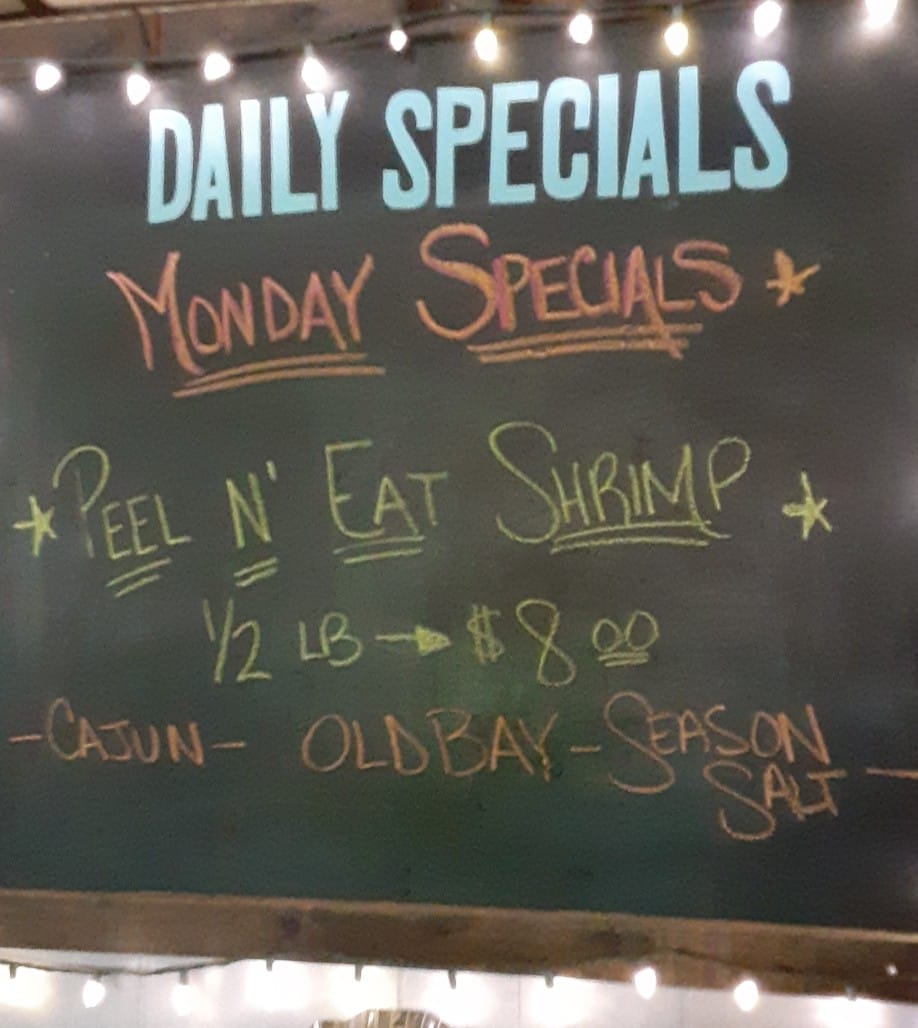 DAILY SPECIALS
MONDAY SPECIALS
PEEL N' EAT SHRIMP
1/2 LB → $8 00
-CAJUN- OLD BAY - SEASON
SALT -